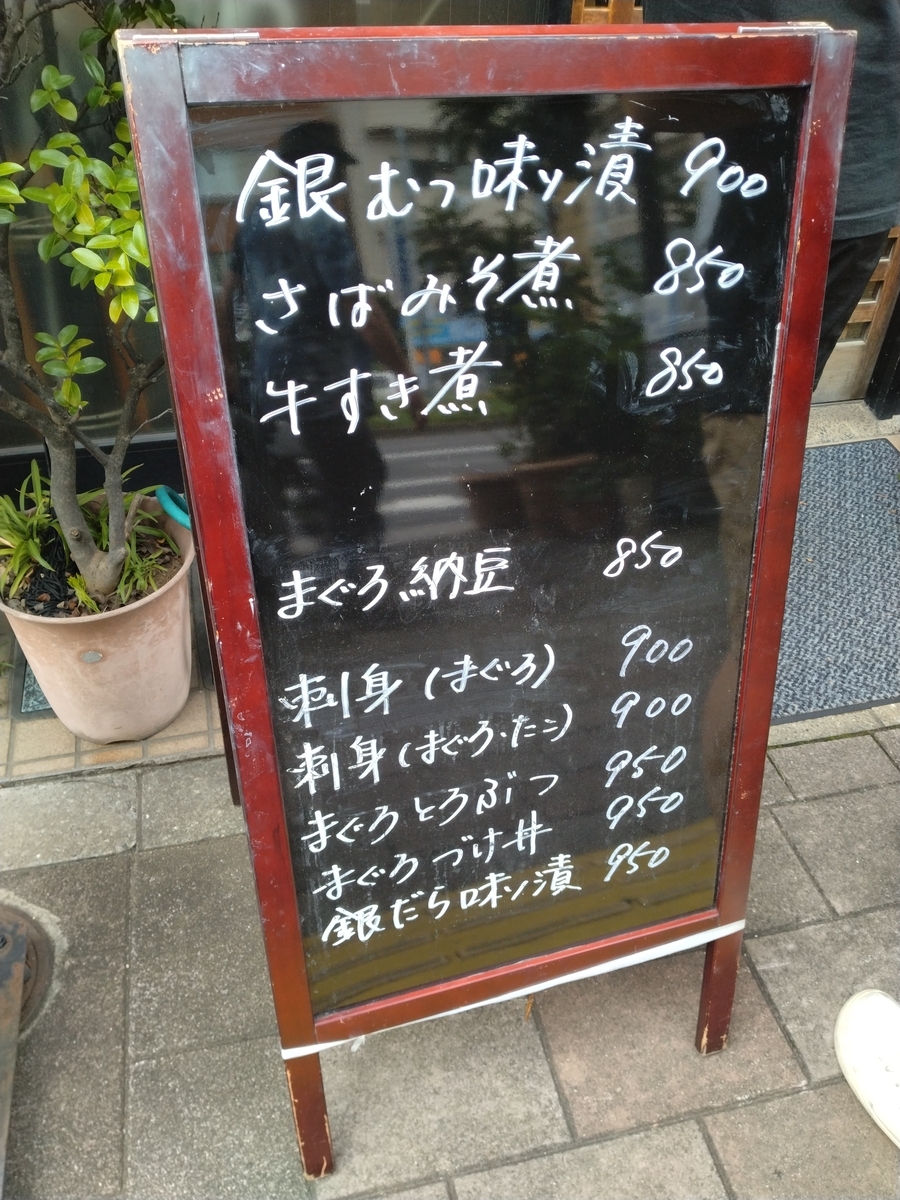 銀むつ味ソ漬 900
さばみそ煮 850
牛すき煮 850
まぐろ納豆 850
刺身(まぐろ) 900
刺身(まぐろ・たこ) 900
まぐろとろぶつ 950
まぐろづけ丼 950
銀だら味ソ漬 950